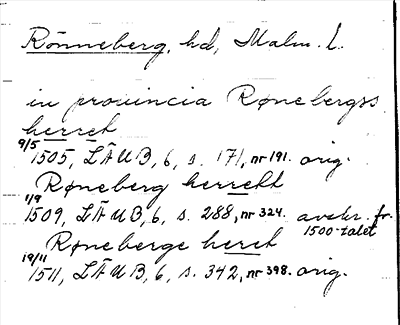 Rönneberg, hd, Malm. L.
in prouincia Rønebergss
herret
9/5 1505, LÄUB, 6, s. 171, nr 191. orig.
Røneberg herrett
1/9 1509, LÄUB, 6, s. 288, nr 324. avskr. fr. 1500-talet
Røneberge heret
19/11 1511, LÄUB, 6, s. 342, nr 398. orig.